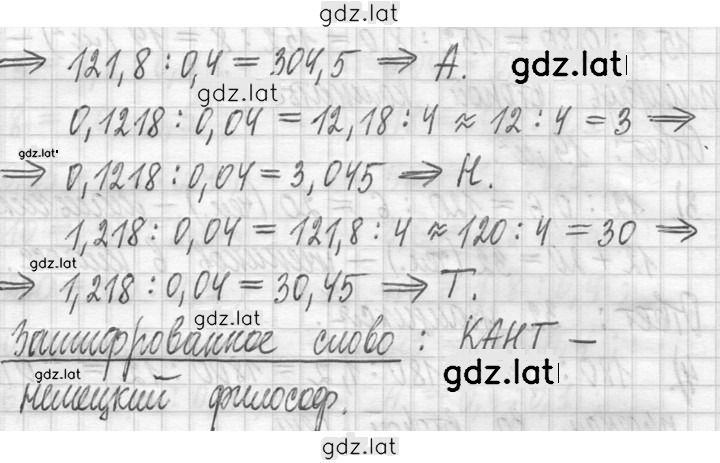 gdz.lat
⇒ 121,8 : 0,4 = 304,5 ⇒ А.
gdz.lat
gdz.lat
0,1218 : 0,04 = 12,18 : 4 ≈ 12 : 4 = 3 ⇒
gdz.lat
⇒ 0,1218 : 0,04 = 3,045 ⇒ Н.
1,218 : 0,04 = 121,8 : 4 ≈ 120 : 4 = 30 ⇒
gdz.lat
⇒ 1,218 : 0,04 = 30,45 ⇒ Т.
gdz.lat
Зашифрованное слово : КАНТ —
gdz.lat
gdz.lat
немецкий философ.
gdz.lat